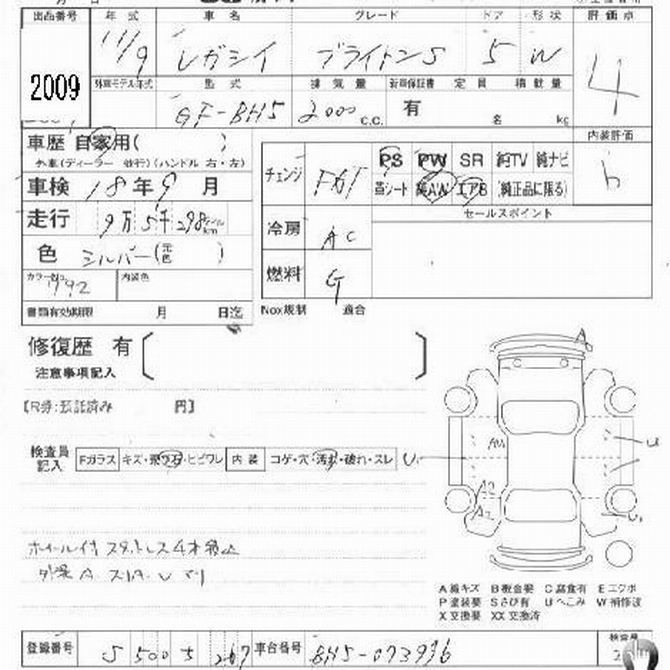 出品番号 年 式 車 名 グレード ドア 形 状 評 価 点
2009 11/9 レガシィ ブライトンS 5 W 4
外車モデル年式 型 式 排 気 量 新車保証書 定 員 積 載 量
GF-BH5 2000 c.c. 有 名 kg
内装評価
b
車歴 自家用( )
外車(ディーラー 並行)(ハンドル 右・左)
車検 18年9月
走行 9万5千298km
色 シルバー(元色 )
カラーNo. 792 内装色
書類有効期限 月 日迄
チェンジ FAT PS PW SR 純TV 純ナビ
革シート 純AW エアB (純正品に限る)
冷房 AC セールスポイント
燃料 G
Nox規制 適合
修復歴 有
注意事項記入
[R券:預託済み 円]
検査員記入 Fガラス キズ・飛び石・ヒビワレ 内 装 コゲ・穴・汚れ・破れ・スレ
ホイール付スタットレス4本積込
A
U
A2
A2
A 線キズ B 板金要 C 腐食有 E エクボ
P 塗装要 S さび有 U へこみ W 補修波
X 交換要 XX 交換済
登録番号 S 500 5 267 車台番号 BH5-073936
検査員